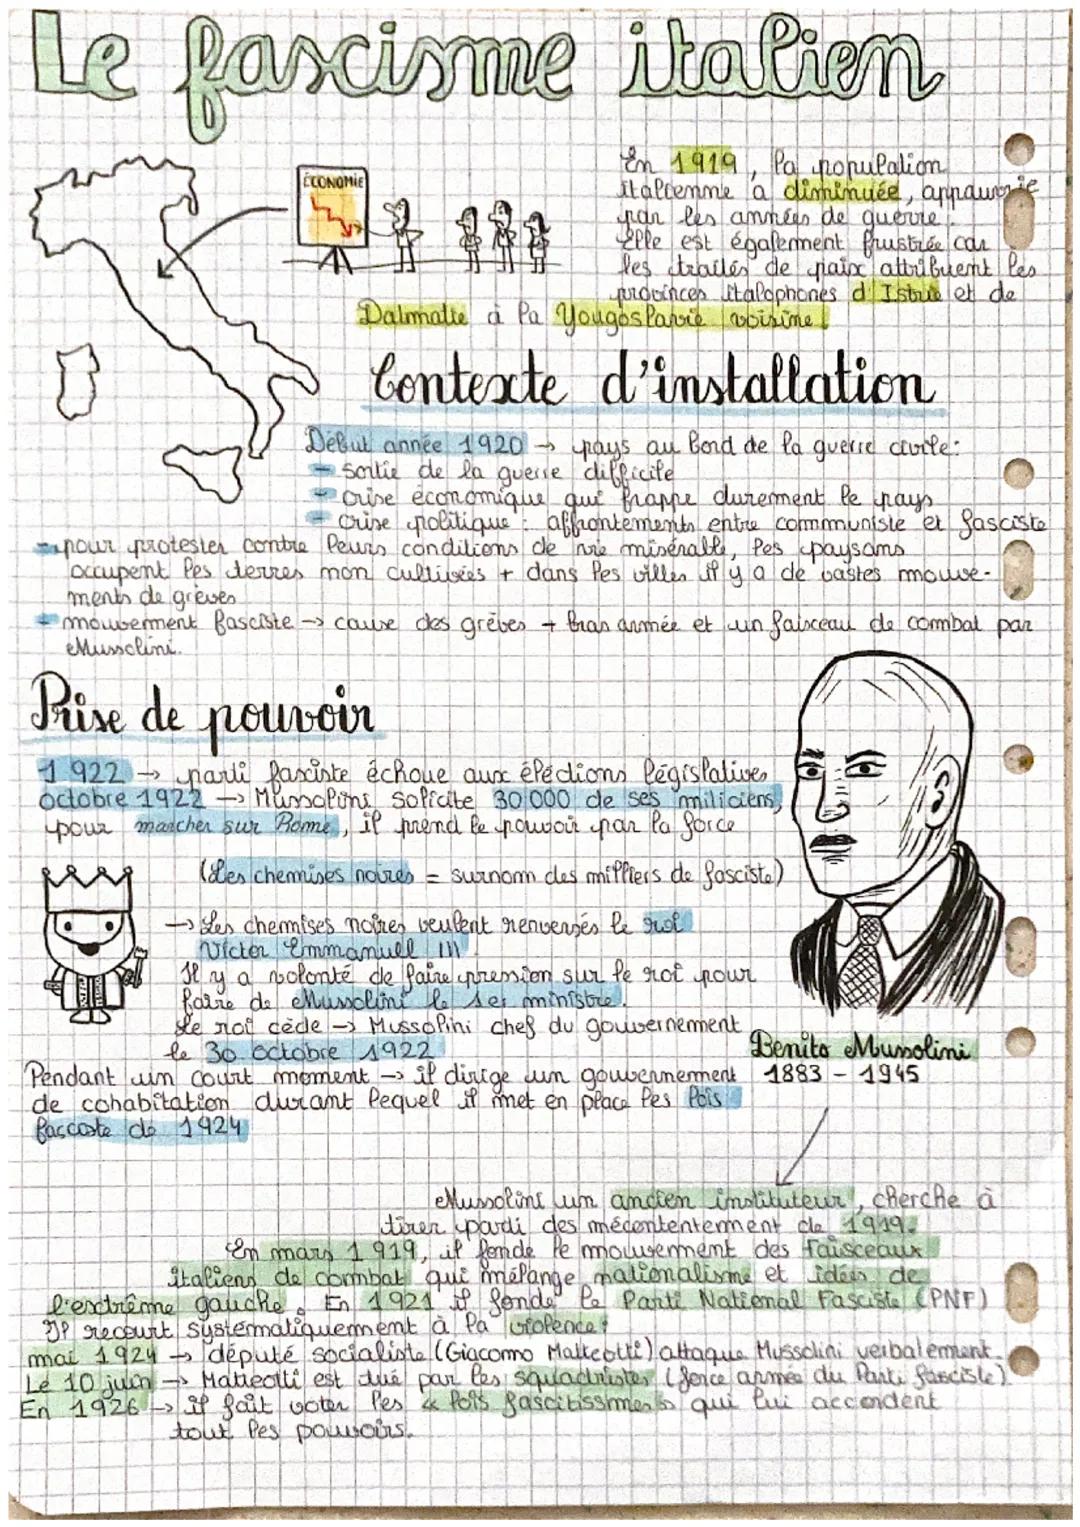 Le fascisme italien
ÉCONOMIE
En 1919, la population
italienne a diminuée, appauvrie
par les années de guerre.
Elle est également frustrée car
les traités de paix attribuent les
provinces italophones d'Istrie et de
Dalmatie à la Yougoslavie voisine.
Contexte d'installation
Début année 1920 → pays au bord de la guerre civile:
- sortie de la guerre difficile
- crise économique qui frappe durement le pays
- crise politique : affrontements entre communiste et fasciste
- pour protester contre leurs conditions de vie misérable, les paysans
occupent les terres non cultivées + dans les villes il y a de vastes mouve-
ments de grèves
+ mouvement fasciste → cause des grèves + bras armée et un faisceau de combat par
Mussolini.
Prise de pouvoir
1922 → parti fasciste échoue aux élections législatives
octobre 1922 → Mussolini solicite 30 000 de ses miliciens,
pour marcher sur Rome, il prend le pouvoir par la force
(Les chemises noires = surnom des milliers de fasciste)
→ Les chemises noires veulent renversés le roi
Victor Emmanuell III.
Il y a volonté de faire pression sur le roi pour
faire de Mussolini le 1er ministre.
Le roi cède → Mussolini chef du gouvernement
le 30 octobre 1922
Benito Mussolini
1883 - 1945
Pendant un court moment → il dirige un gouvernement
de cohabitation durant lequel il met en place les lois
fasciste de 1924
Mussolini un ancien instituteur, cherche à
tirer parti des mécontentement de 1919.
En mars 1919, il fonde le mouvement des faisceaux
italiens de combat qui mélange nationalisme et idées de
l'extrême gauche. En 1921 il fonde le Parti National Fasciste (PNF)
Il recourt systématiquement à la violence.
mai 1924 → député socialiste (Giacomo Matteotti) attaque Mussolini verbalement.
Le 10 juin → Matteotti est tué par les squadristes (force armée du Parti fasciste).
En 1926 → il fait voter les « lois fascitissimes » qui lui accordent
tout les pouvoirs.